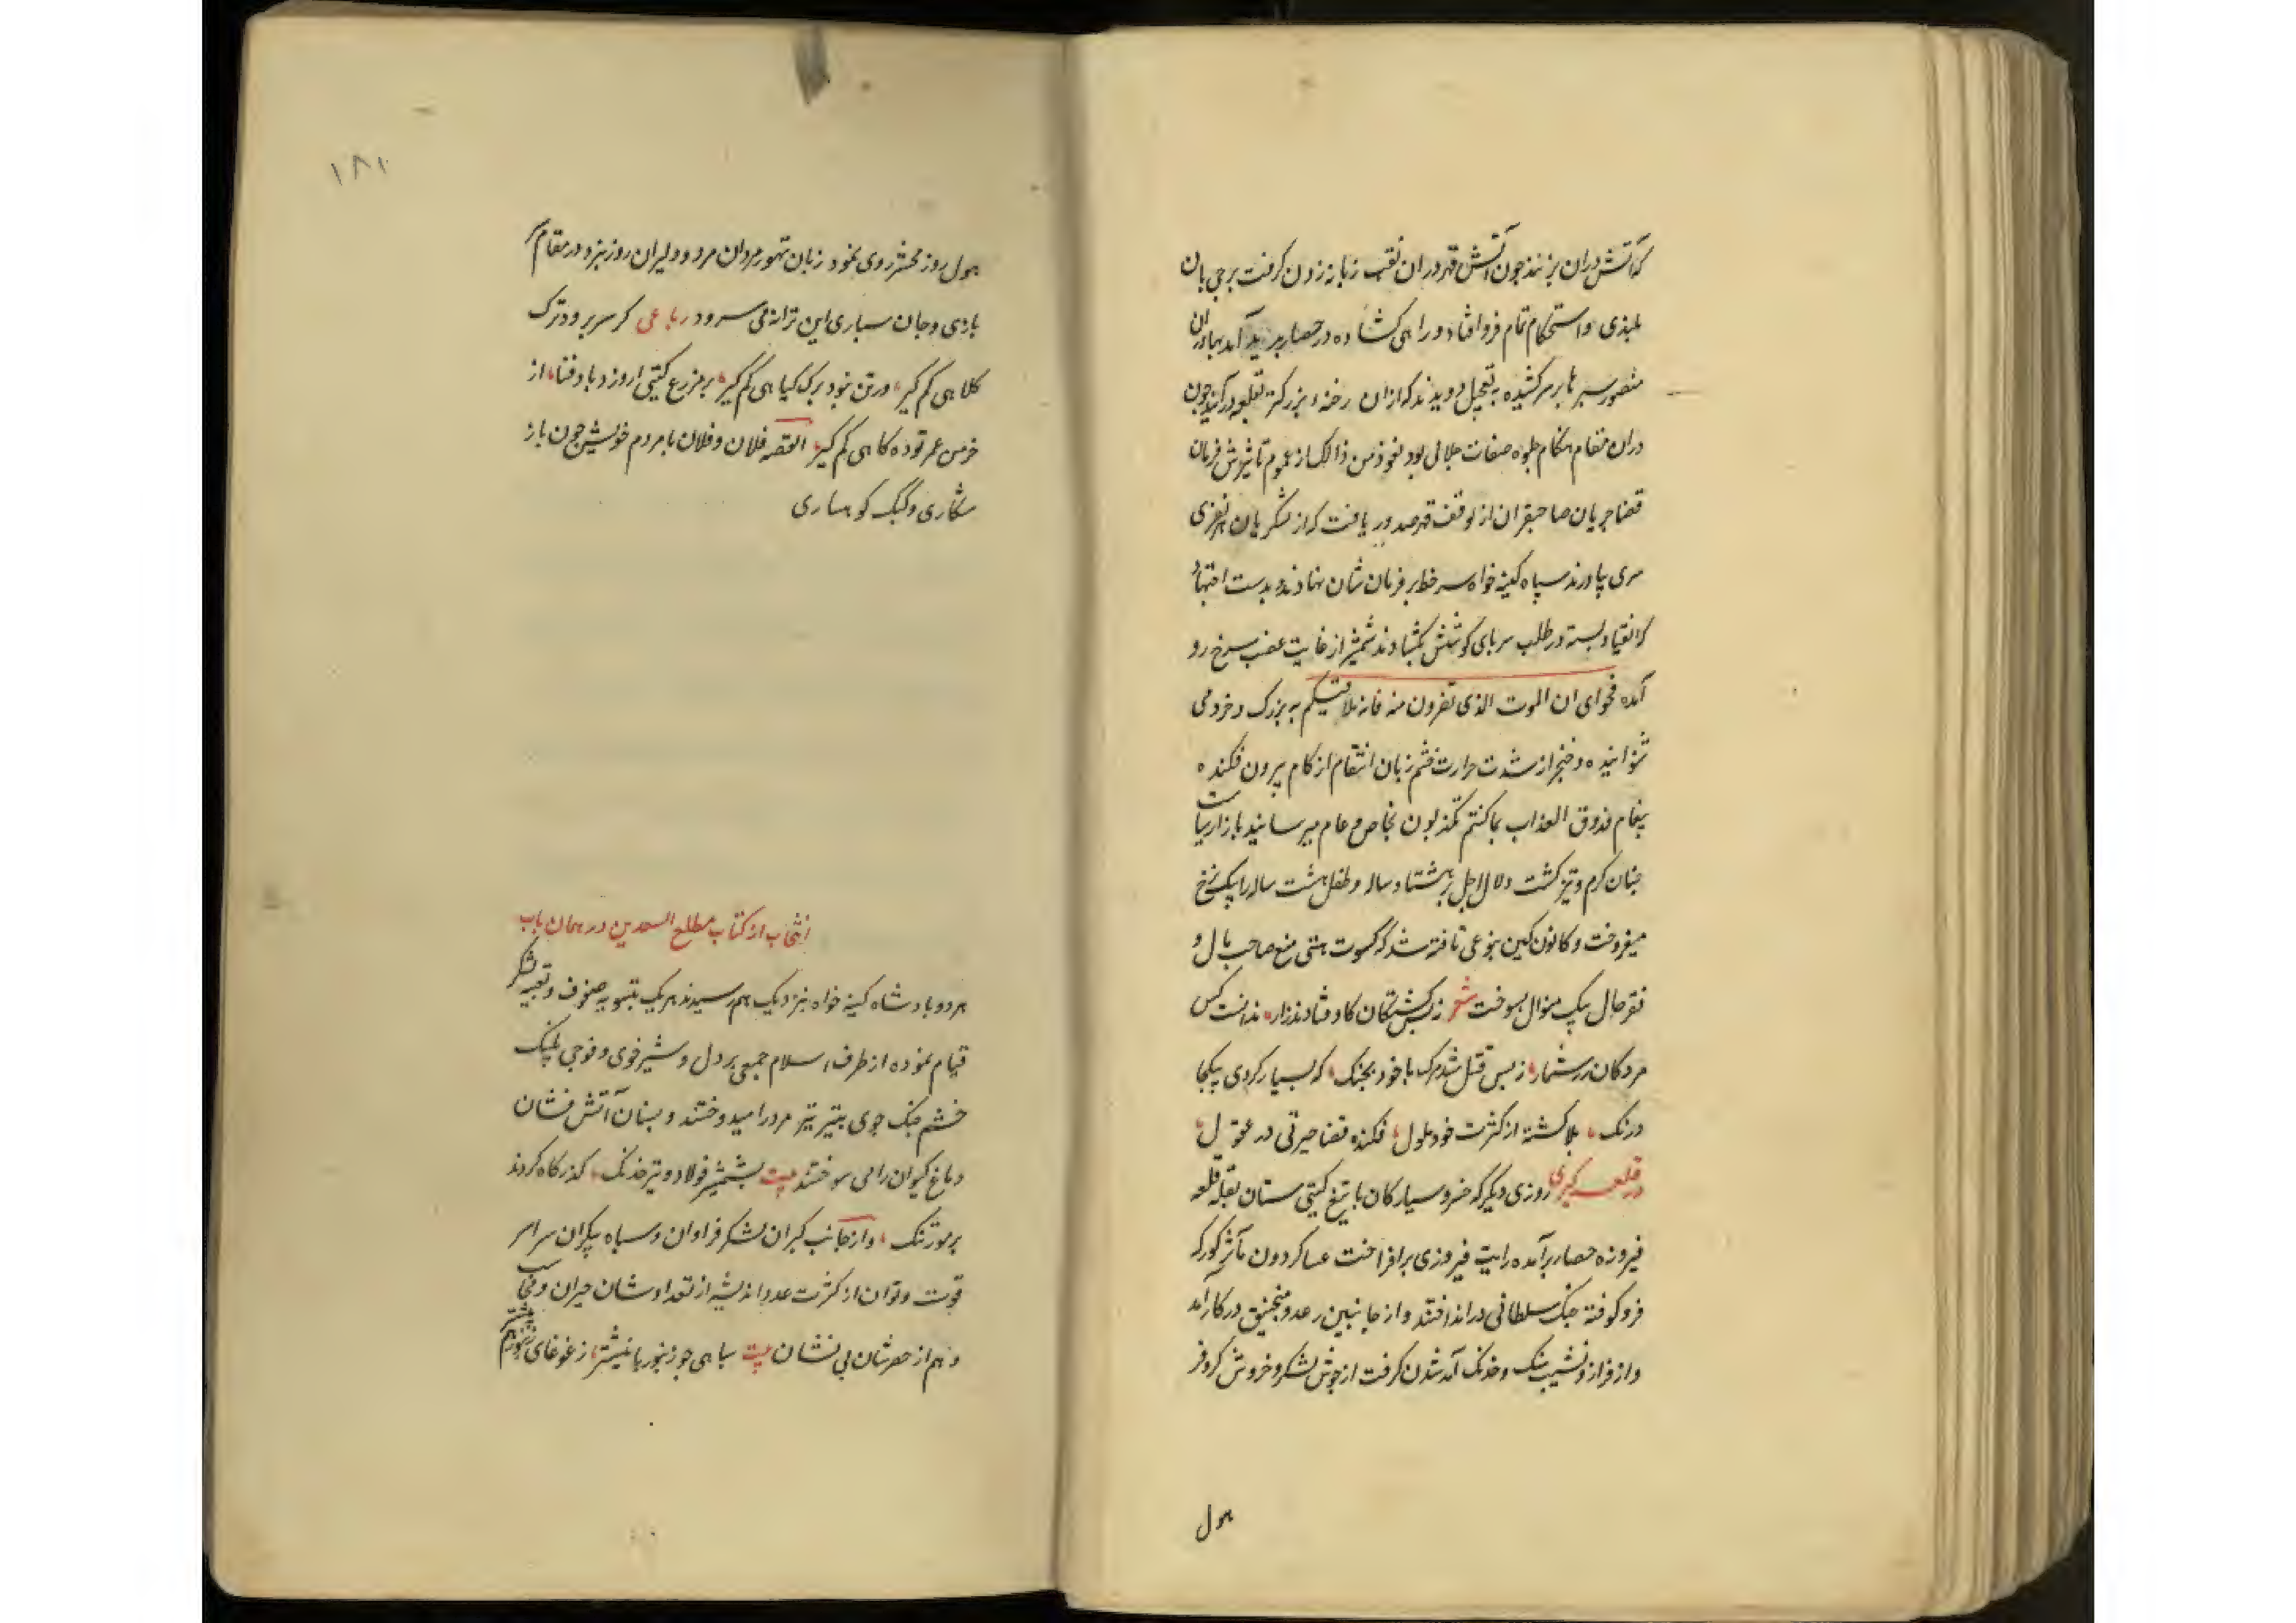 که آتش دران بزنند چون آتش قهر دران نقب زبانه زدن کرفت برجی بان
بلندی و استحکام تمام فرو افتاد و راهی کشاده در حصار پدید آمد بهادران
منصور سپرها بر سر کشیده به تعجیل دویدند که ازان رخنهء بزرکتر بقلعه در آیند چون
دران مقام هنکام جلوه صفات جلالی بود نعوذ من ذالک از عموم تاثیرش فرمان
قضا جریان صاحبقران از موقف قهر صدور یافت که از لشکریان هر نفری
سری بیاورند سپاه کینه خواه سر خط بر فرمان شان نهادند و بدست اجتهاد
کمر انقیاد بسته در طلب سر پای کوشش بکشادند شمشیر از غایت غضب سرخ رو
آمده فحوای ان الموت الذی تفرون منه فانه ملاقیکم به بزرک و خرد می
شنوانیده و خنجر از شدت حرارت خشم زبان انتقام از کام بیرون فکنده
پیغام فذوق العذاب بما کنتم تکذبون بخاص و عام میرسانید بازار سیاست
چنان کرم و تیز کشت دلال اجل پیر هشتاد ساله و طفل هشت ساله را بیک نرخ
میفروخت و کانون کین بنوعی تافته شد که کسوت هستی منع صاحب مال و
فقر حال بیک منوال بسوخت شعر ز بس کشتکان کاوفتادند زار، ندانست کس
مردکان را شمار، ز بس قتل شد مرک با خود بجنک، که بسیار کردی بیکجا
درنک، بلا کشته از کثرت خود ملول، فکنده قضا حیرتی در عقول،
در قلعه کیری روزی دیکر که خسرو سیارکان با تیغ کیتی ستان بقلهء قلعه
فیروزه حصار برآمده رایت فیروزی برافراخت عساکر دون مآثر کورکه
فرو کوفته جنک سلطانی در انداختند و از جانبین رعد و منجنیق در کار آمد
و از فراز و نشیب سنک و خدنک آمد شدن کرفت از جوش لشکر و خروش کروفر
هول
۱۸۱
هول روز محشر روی نمود زبان تهور مردان مرد و دلیران روز نبرد در مقام سر
بازی و جان سپاری این ترانه می سرود رباعی کر سر برود ترک
کلاهی کم کیر، ور تن نبود برک کیاهی کم کیر، بر مزرع کیتی ار وزد باد فنا، از
خرمن عمر توده کاهی کم کیر، القصه فلان و فلان با مردم خویش چون باز
شکاری و کبک کوهساری
انتخاب از کتاب مطلع السعدین در همان باب
هر دو بادشاه کینه خواه نزدیک هم رسیدند هریک بتسویه صفوف و تعبیه لشکر
قیام نموده از طرف اسلام جمعی پر دل و شیر خوی و فوجی پلنک
خشم جنک جوی بتیر تیز مرد را میدوختند و بسنان آتش فشان
دماغ کیوان را می سوختند بیت بشمشیر فولاد و تیر خدنک، کذرکاه کردند
بر مور تنک، و از جانب کبران لشکر فراوان و سپاه بیکران سراسر
قوت و توان از کثرت عدد اندیشه از تعداد شان حیران و محاسب
وهم از حصر شان بی نشان بیت سپاهی چو زنبور با نیشتر، ز غوغای زنبور هم بیشتر